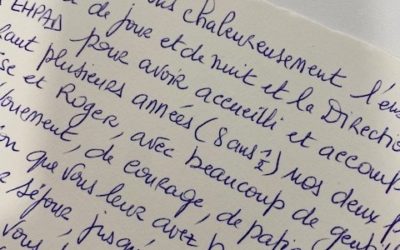 chaleureusement l'en
de jour et de nuit et la Directi
EHPAD pour avoir accueilli et accomp
ant plusieurs années (8 ans 1/2) nos deux p
se et Roger, avec beaucoup de genti
ouement, de courage, de pati
on que vous leur avez
séjour, jusqu